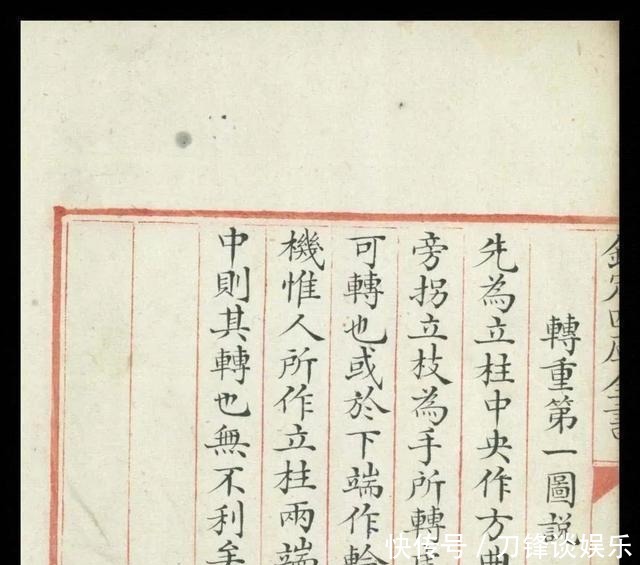 欽定四庫全書
轉重第一圖說
先為立柱中央作方曲
旁拐立枝為手所轉
可轉也或於下端作輪
機惟人所作立柱兩端
中則其轉也無不利矣
快传号 / 刀锋谈娱乐